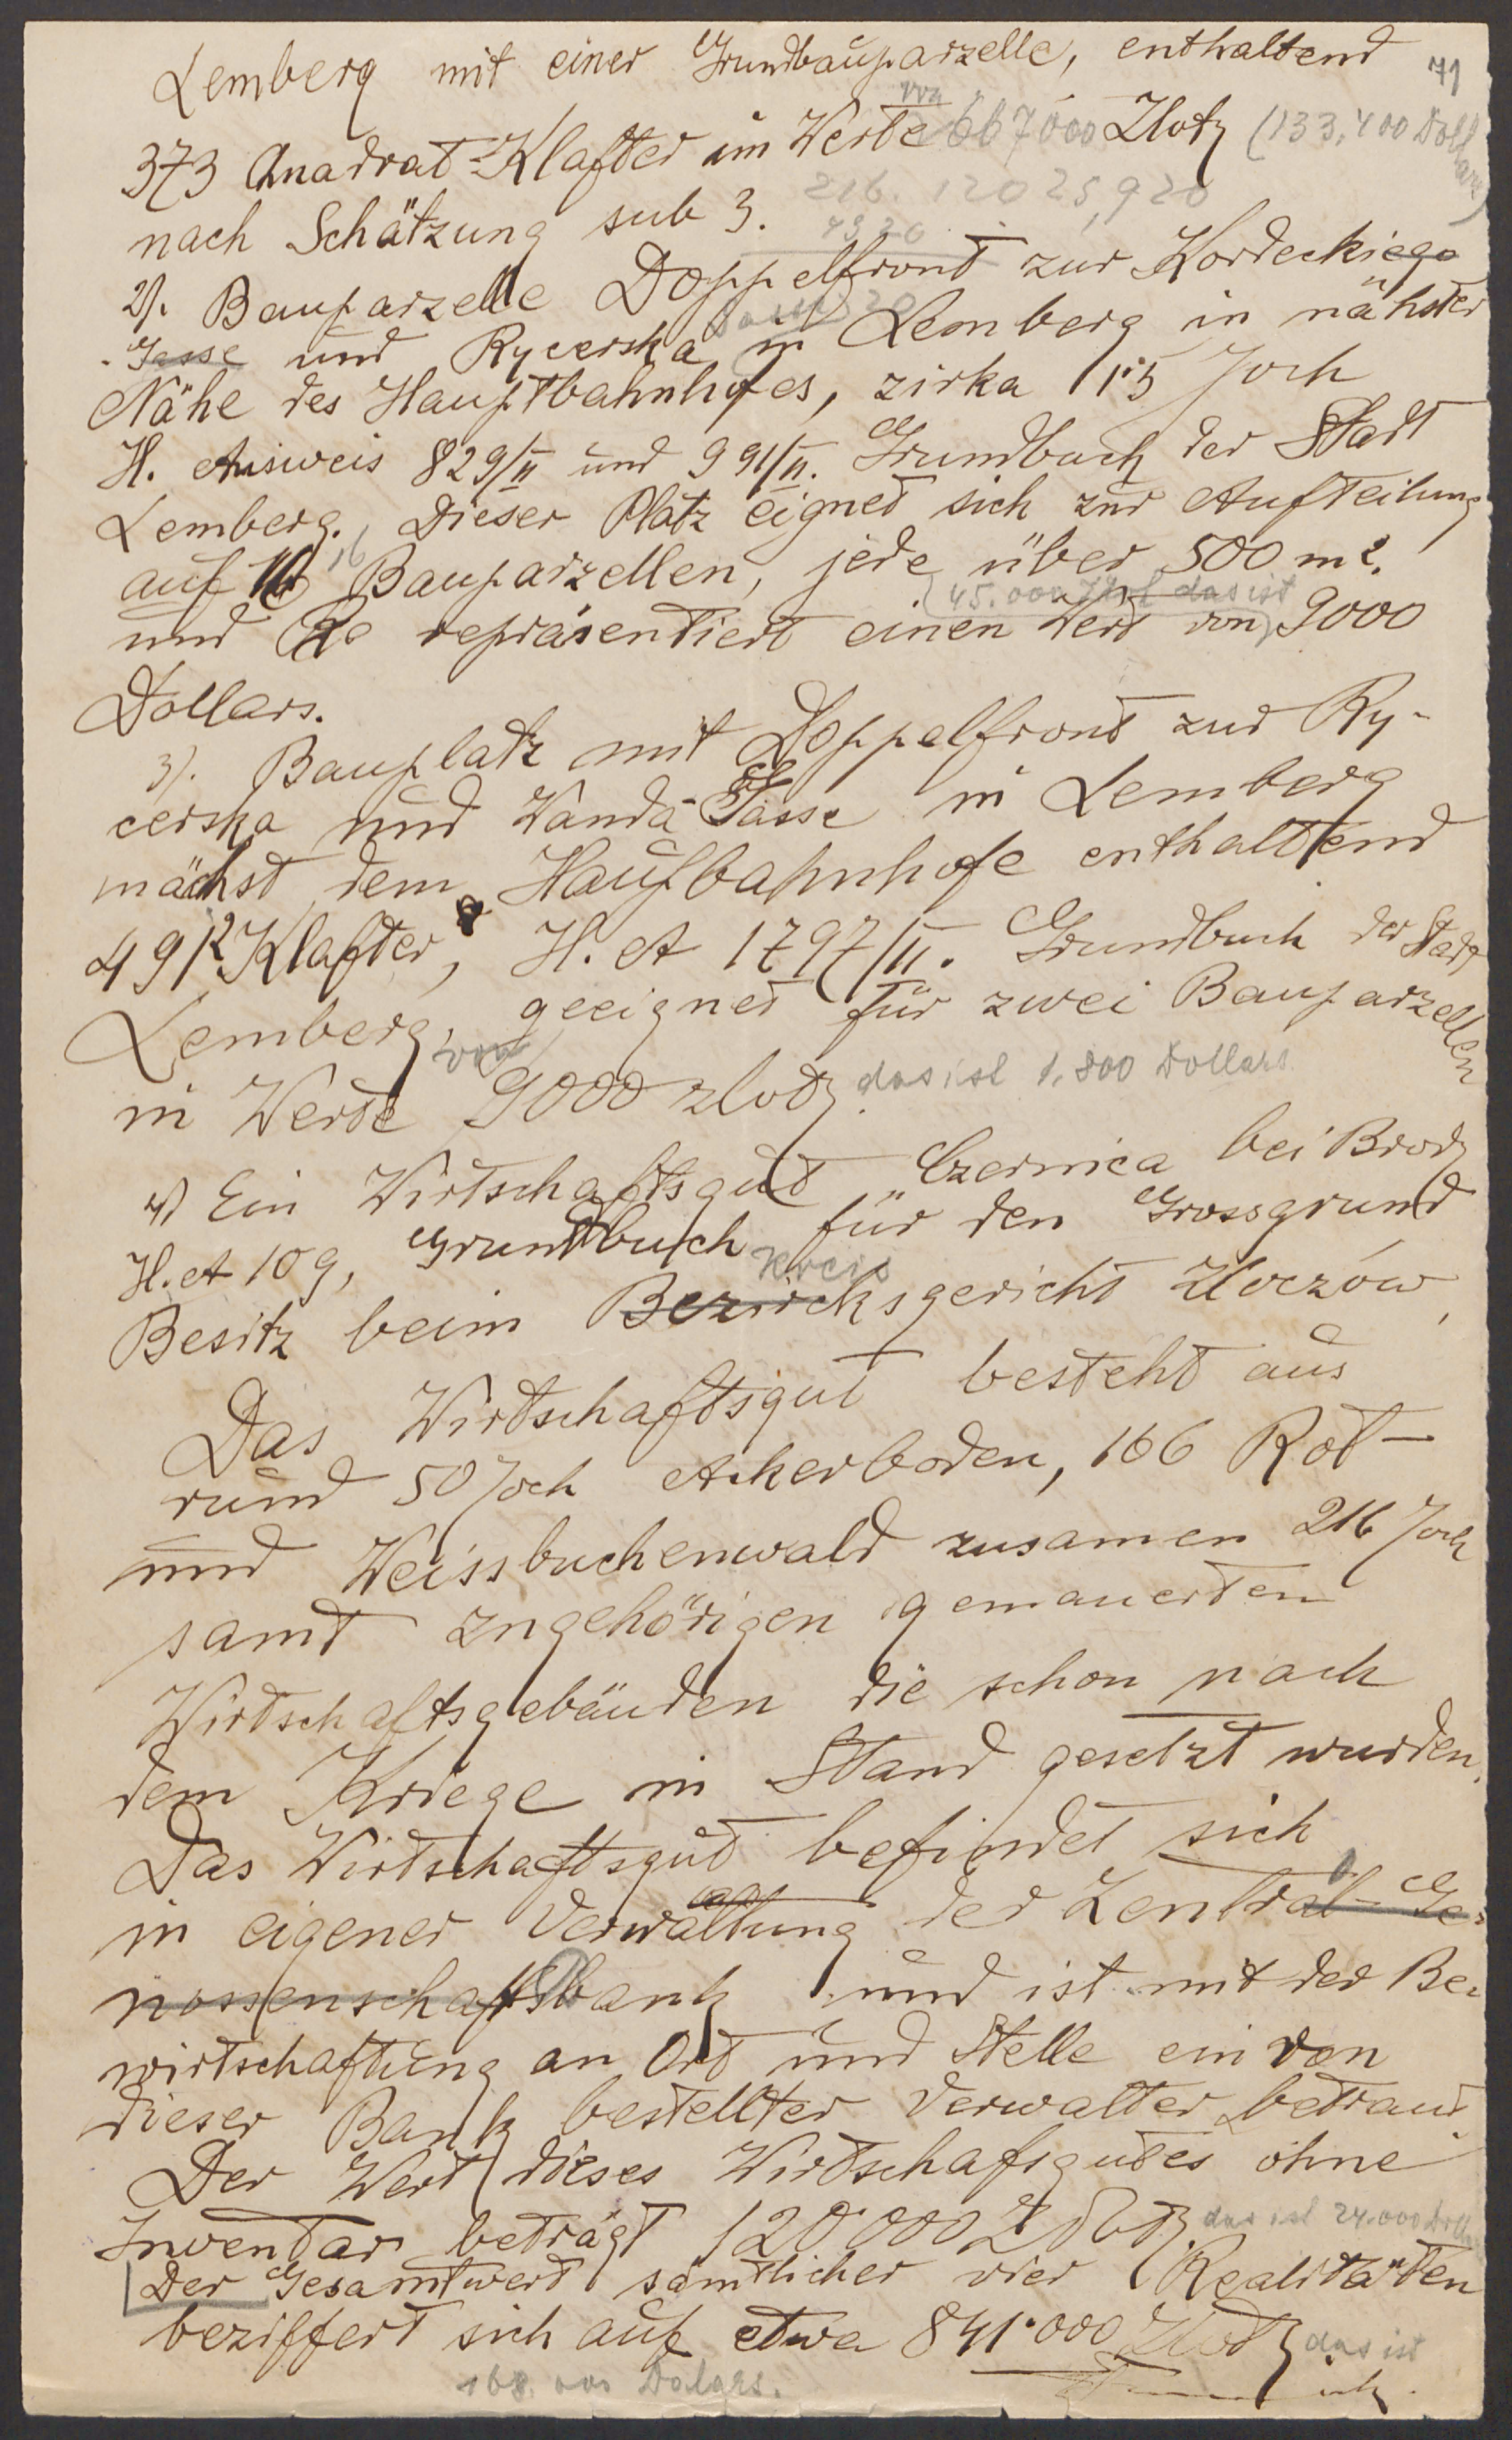 71
Lemberg mit einer Grundbauparzelle, enthaltend
von
373 Quadrat-Klafter im Werte 667000 Zloty (133.400 Dollars)
216. 120 25,920
nach Schätzung sub 3.
4320
2). Bauparzelle Doppelfront zur Kordeckiego
Gasse und Rycerska Gasse in Lemberg in nähster
Nähe des Hauptbahnhofes, zirka 1·5 Joch
H. Ausweis 829/II und 991/II. Grundbuch der Stadt
Lemberg. Dieser Platz eignet sich zur Aufteilung
auf 16 Bauparzellen, jede über 500 m2.
45.000 das ist
und repräsentiert einen Wert von 9000
Dollars.
3). Bauplatz mit Doppelfront zur Ry-
cerska und Wanda-Gasse in Lemberg
nächst dem Haufbahnhofe enthaltend
491 Klafter, H. A 1797/II. Grundbuch der Stadt
Lemberg, geeignet für zwei Bauparzellen
in Werte von 9000 zloty das ist 1.800 Dollars.
4) Ein Wirtschaftsgut „Czernica bei Brody
H. A 109, Grundbuch für den Grossgrund
Kreis
Besitz beim Bezircksgericht Złoczów,
Das Wirtschaftsgut besteht aus
rund 50 Joch Ackerboden, 166 Rot-
und Weissbuchenwald zusamen 216 Joch
samt zugehörigen gemauerten
Wirtschaftsgebäuden die schon nach
dem Kriege in Stand gesetzt wurden.
Das Wirtschaftsgut befindet sich
in eigener Verwaltung der Zentral-Ge-
nossenschaftsbank und ist mit der Be-
wirtschaftung an Ort und Stelle ein von
dieser Bank bestellter Verwalter betraut.
Der Wert dieses Wirtschafsgutes ohne
Inventar beträgt 120·000 Zloty das ist 24.000 Doll
Der Gesamtwert sämtlicher vier Realitäten
beziffert sich auf etwa 841·000 Zloty das ist
168.000 Dolars.